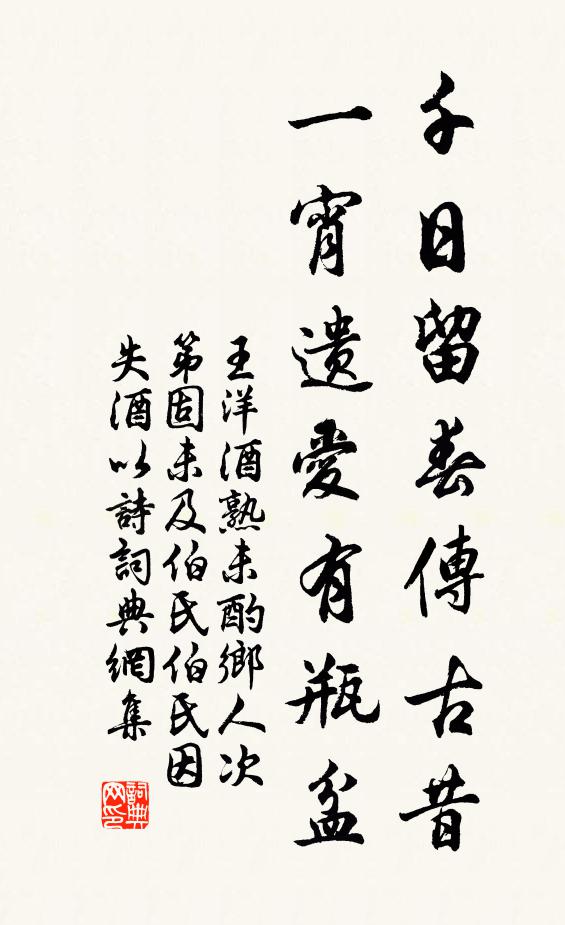 千日留春傳古昔
一宵遺愛有瓶盆
王洋酒熟未酌鄉人次
第固未及伯氏伯氏因
失酒以詩詞典網集
詞典网印